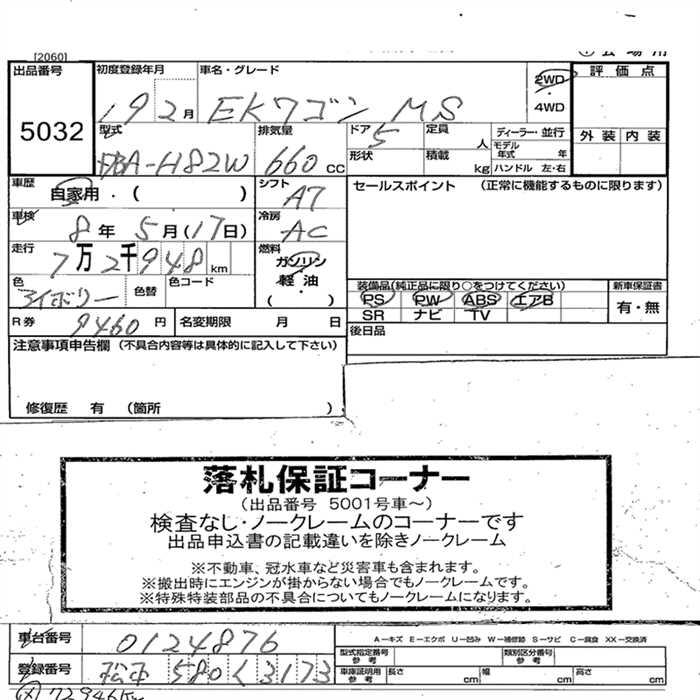 [2060]
出品番号
5032
初度登録年月
19 2月
車名・グレード
EKワゴン MS
2WD
・
4WD
評価点
外装 内装
型式
DBA-H82W
排気量
660 cc
ドア 5
定員 人
ディーラー・並行
モデル年式 年
形状
積載 kg
ハンドル 左・右
車歴
自家用・( )
シフト
A7
セールスポイント (正常に機能するものに限ります)
車検
8年 5月(17日)
冷房
AC
走行
7万2千948km
燃料
ガソリン
軽油
( )
色
アイボリー
色替
色コード
装備品(純正品に限り○をつけてください)
PS PW ABS エアB
SR ナビ TV
新車保証書
有・無
R券
9460円
名変期限 月 日
後日品
注意事項申告欄 (不具合内容等は具体的に記入して下さい)
修復歴 有 (箇所 )
落札保証コーナー
(出品番号 5001号車~)
検査なし・ノークレームのコーナーです
出品申込書の記載違いを除きノークレーム
※不動車、冠水車など災害車も含まれます。
※搬出時にエンジンが掛からない場合でもノークレームです。
※特殊特装部品の不具合についてもノークレームになります。
車台番号
0124876
A-キズ E-エクボ U-凹み W-補修跡 S-サビ C-腐食 XX-交換済
型式指定番号
参考
類別区分番号
参考
登録番号
580 く 3173
車庫証明用
参考
長さ cm
幅 cm
高さ cm
72946km